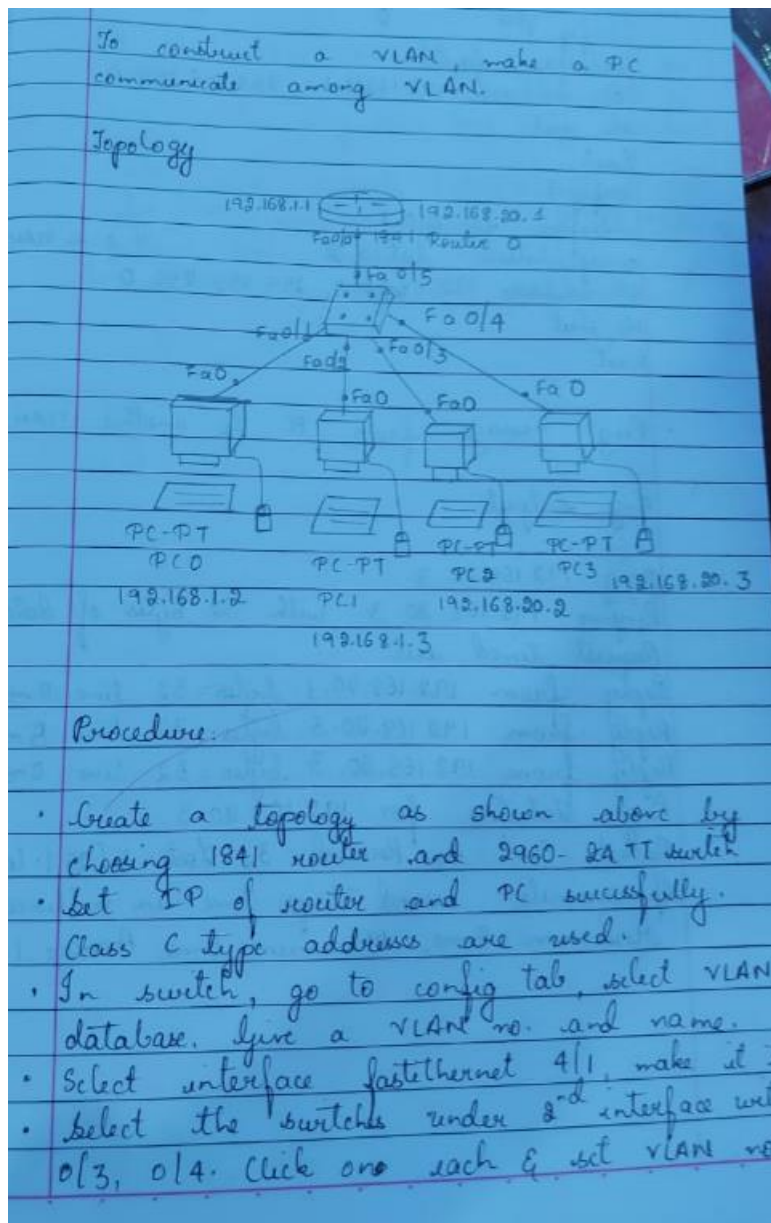 To construct a VLAN, make a PC
communicate among VLAN.
Topology
192.168.1.1 192.168.20.1
Fa0/0 1841 Router 0
Fa 0/5
Fa 0/4
Fa0/1
Fa0/2
Fa0/3
Fa0
Fa0
Fa0
Fa 0
PC-PT
PC0
192.168.1.2
PC-PT
PC1
192.168.1.3
PC-PT
PC2
192.168.20.2
PC-PT
PC3
192.168.20.3
Procedure.
• Create a topology as shown above by
choosing 1841 router and 2960-24 TT switch
• Set IP of router and PC sucessfully.
Class C type addresses are used.
• In switch, go to config tab, select VLAN
database. Give a VLAN no. and name.
• Select interface fastethernet 4/1, make it
• Select the switches under 2nd interface
0/3, 0/4. Click on each & set VLAN